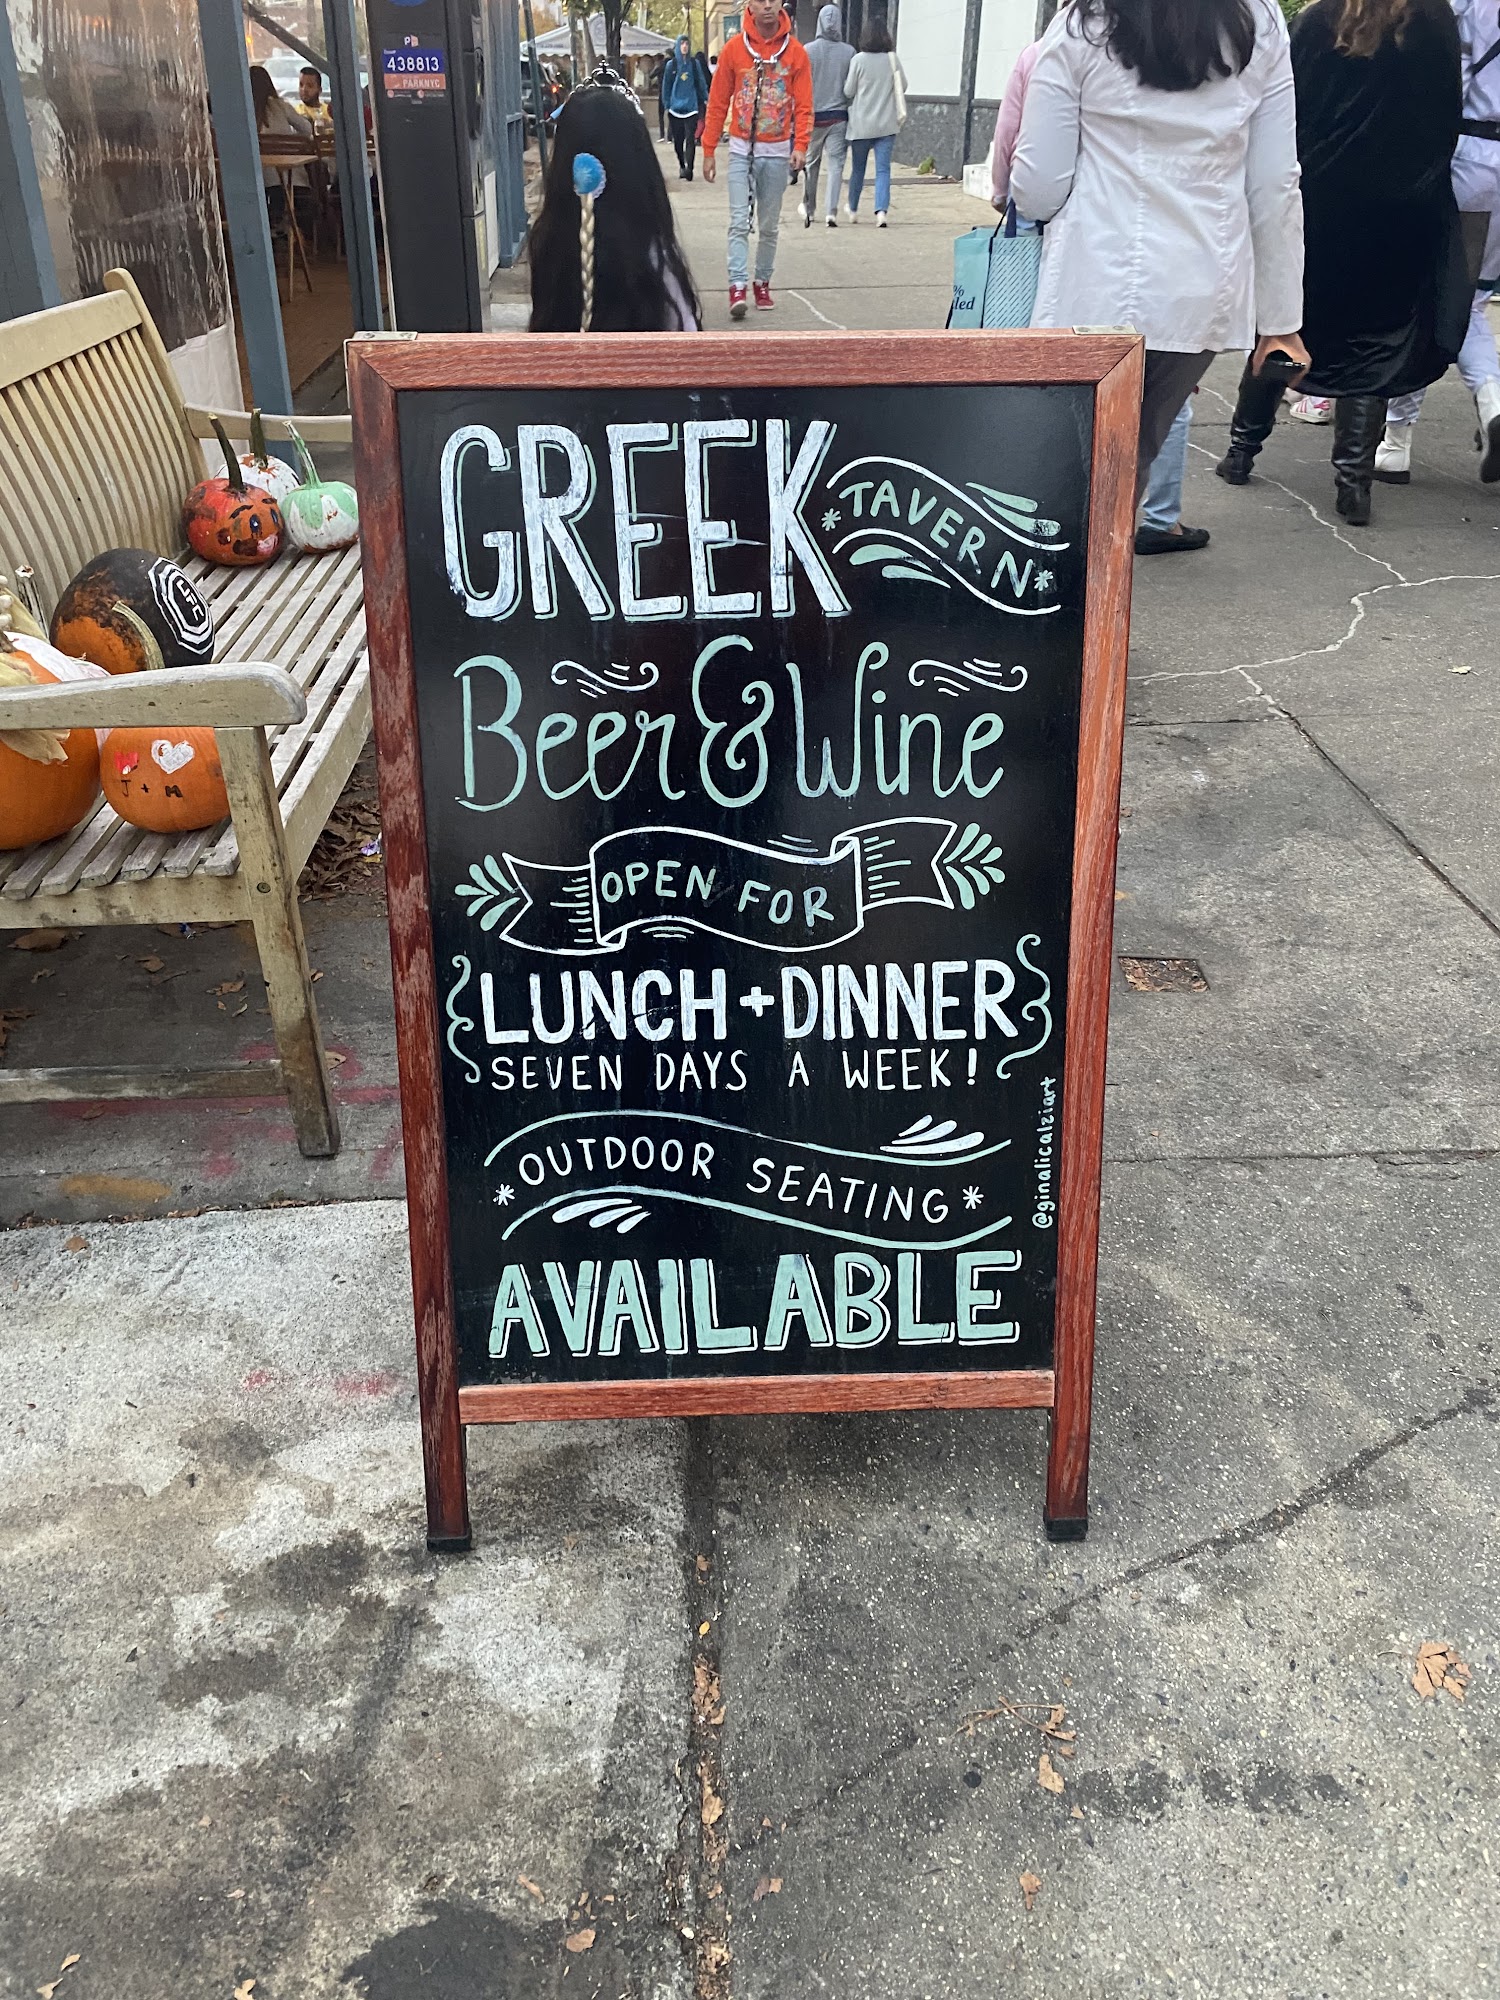 P
438813
PARKNYC
% 
led
UFC
J + M
GREEK
*TAVERN*
Beer & Wine
OPEN FOR
LUNCH + DINNER
SEVEN DAYS A WEEK!
* OUTDOOR SEATING *
AVAILABLE
@ginalicalziart